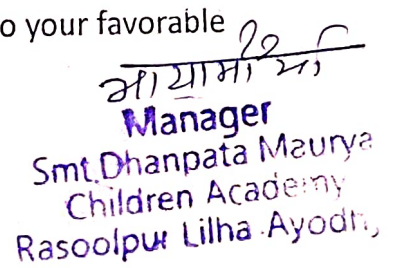 o your favorable
Manager
Smt.Dhanpata Maurya
Children Academy
Rasoolpur Lilha Ayodh